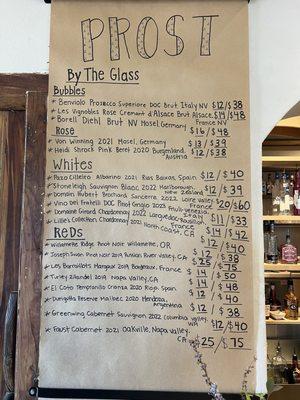 PROST
By The Glass
Bubbles
* Benviolo Prosecco Superiore DOC Brut Italy NV $12/$38
* Les Vignobles Rose Cremant d'Alsace Brut Alsace, France NV $14/$48
* Borell Diehl Brut NV Mosel, Germany $16/$48
Rosé
* Von Winning 2021 Mosel, Germany $13/$39
* Heidi Shrock Pink Beret 2020 Burgenland, Austria $12/$38
Whites
* Pazo Cilleiro Albarino 2021 Rias Baixas, Spain $12/$40
* Stoneleigh Sauvignon Blanc 2022 Marlborough, New Zealand $12/$39
* Domain Hubert Brochard Sancerre 2022 Loire Valley, France $20/$60
* Vino dei Fratelli DOC Pinot Grigio 2023 Friuli-Venezia, Italy $11/$33
* Domaine Girard Chardonnay 2022 Languedoc-Roussillon France $14/$42
* Lillie's Collection Chardonnay 2021 North Coast, CA $12/$40
Reds
* Willamette Ridge Pinot Noir Willamette, OR $12/$38
* Joseph Swan Pinot Noir 2019 Russian River Valley, CA $25/$75
* Les Barraillots Margaux 2019 Bordeaux, France $14/$50
* Turley Zinfandel 2019 Napa Valley, CA $14/$48
* El Coto Tempranillo Crianza 2020 Rioja, Spain $12/$40
* Durigutti Reserve Malbec 2020 Mendoza, Argentina $12/$38
* Greenwing Cabernet Sauvignon 2022 Columbia Valley, WA $12/$40
* Faust Cabernet 2021 Oakville, Napa Valley, CA $25/$75